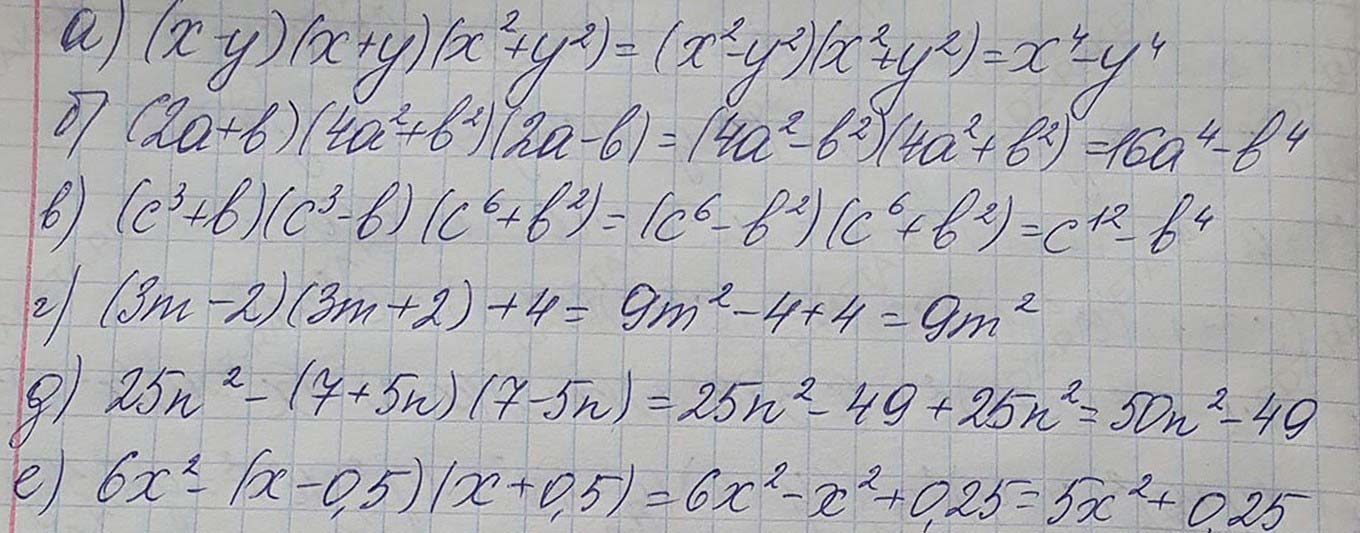 а) (x-y)(x+y)(x²+y²)=(x²-y²)(x²+y²)=x⁴-y⁴
б) (2a+b)(4a²+b²)(2a-b)=(4a²-b²)(4a²+b²)=16a⁴-b⁴
в) (c³+b)(c³-b)(c⁶+b²)=(c⁶-b²)(c⁶+b²)=c¹²-b⁴
г) (3m-2)(3m+2)+4=9m²-4+4=9m²
д) 25n²-(7+5n)(7-5n)=25n²-49+25n²=50n²-49
е) 6x²-(x-0,5)(x+0,5)=6x²-x²+0,25=5x²+0,25